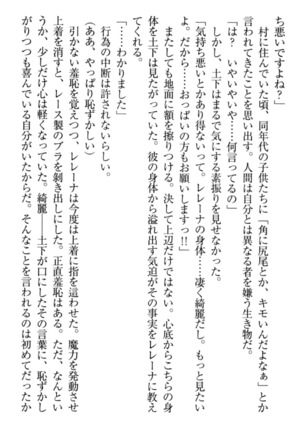 ち悪いですよね？」
　村に住んでいた頃、同年代の子供たちに「角に尻尾とか、キモいんだよなぁ」とか
言われてきたことを思い出す。人間は自分とは異なる者を嫌う生き物だ。
「は？　いやいやいや……何言ってるの」
　しかし、土下はまるで気にする素振りを見せなかった。
「気持ち悪いとかあり得ないって。レレーナの身体……凄く綺麗だし。もっと見たい
よ。だから……おっぱいの方もお願いしますっ!!」
　またしても地面に額を擦りつける。決して上辺だけではない。心底からこちらの身
体を土下は見たがっていた。彼の身体から溢れ出す気迫がその事実をレレーナに教え
てくれる。
「……わかりました」
　行為の中断は許されないらしい。
（ああ、やっぱり恥ずかしい）
　引かない羞恥を覚えつつ、レレーナは今度は上着に指を這わせた。魔力を発動させ
上着を消すと、レース製のブラを剥き出しにした。正直羞恥はある。ただ、なんとい
うか、少しだけ心は軽くなっていた。綺麗――土下が口にしたその言葉に、恥ずかし
がりつつも喜んでいる自分がいたからだ。そんなことを言われるのは初めてだったか